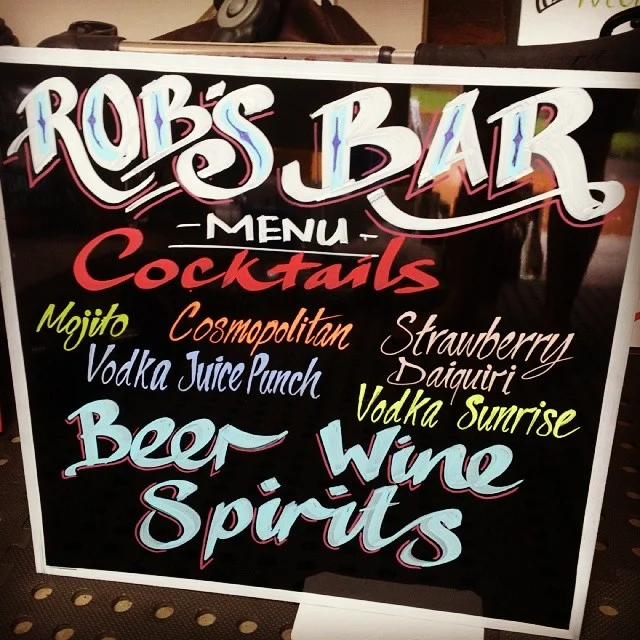 ROB'S BAR
- MENU -
Cocktails
Mojito Cosmopolitan Strawberry Daiquiri
Vodka Juice Punch Vodka Sunrise
Beer Wine
Spirits